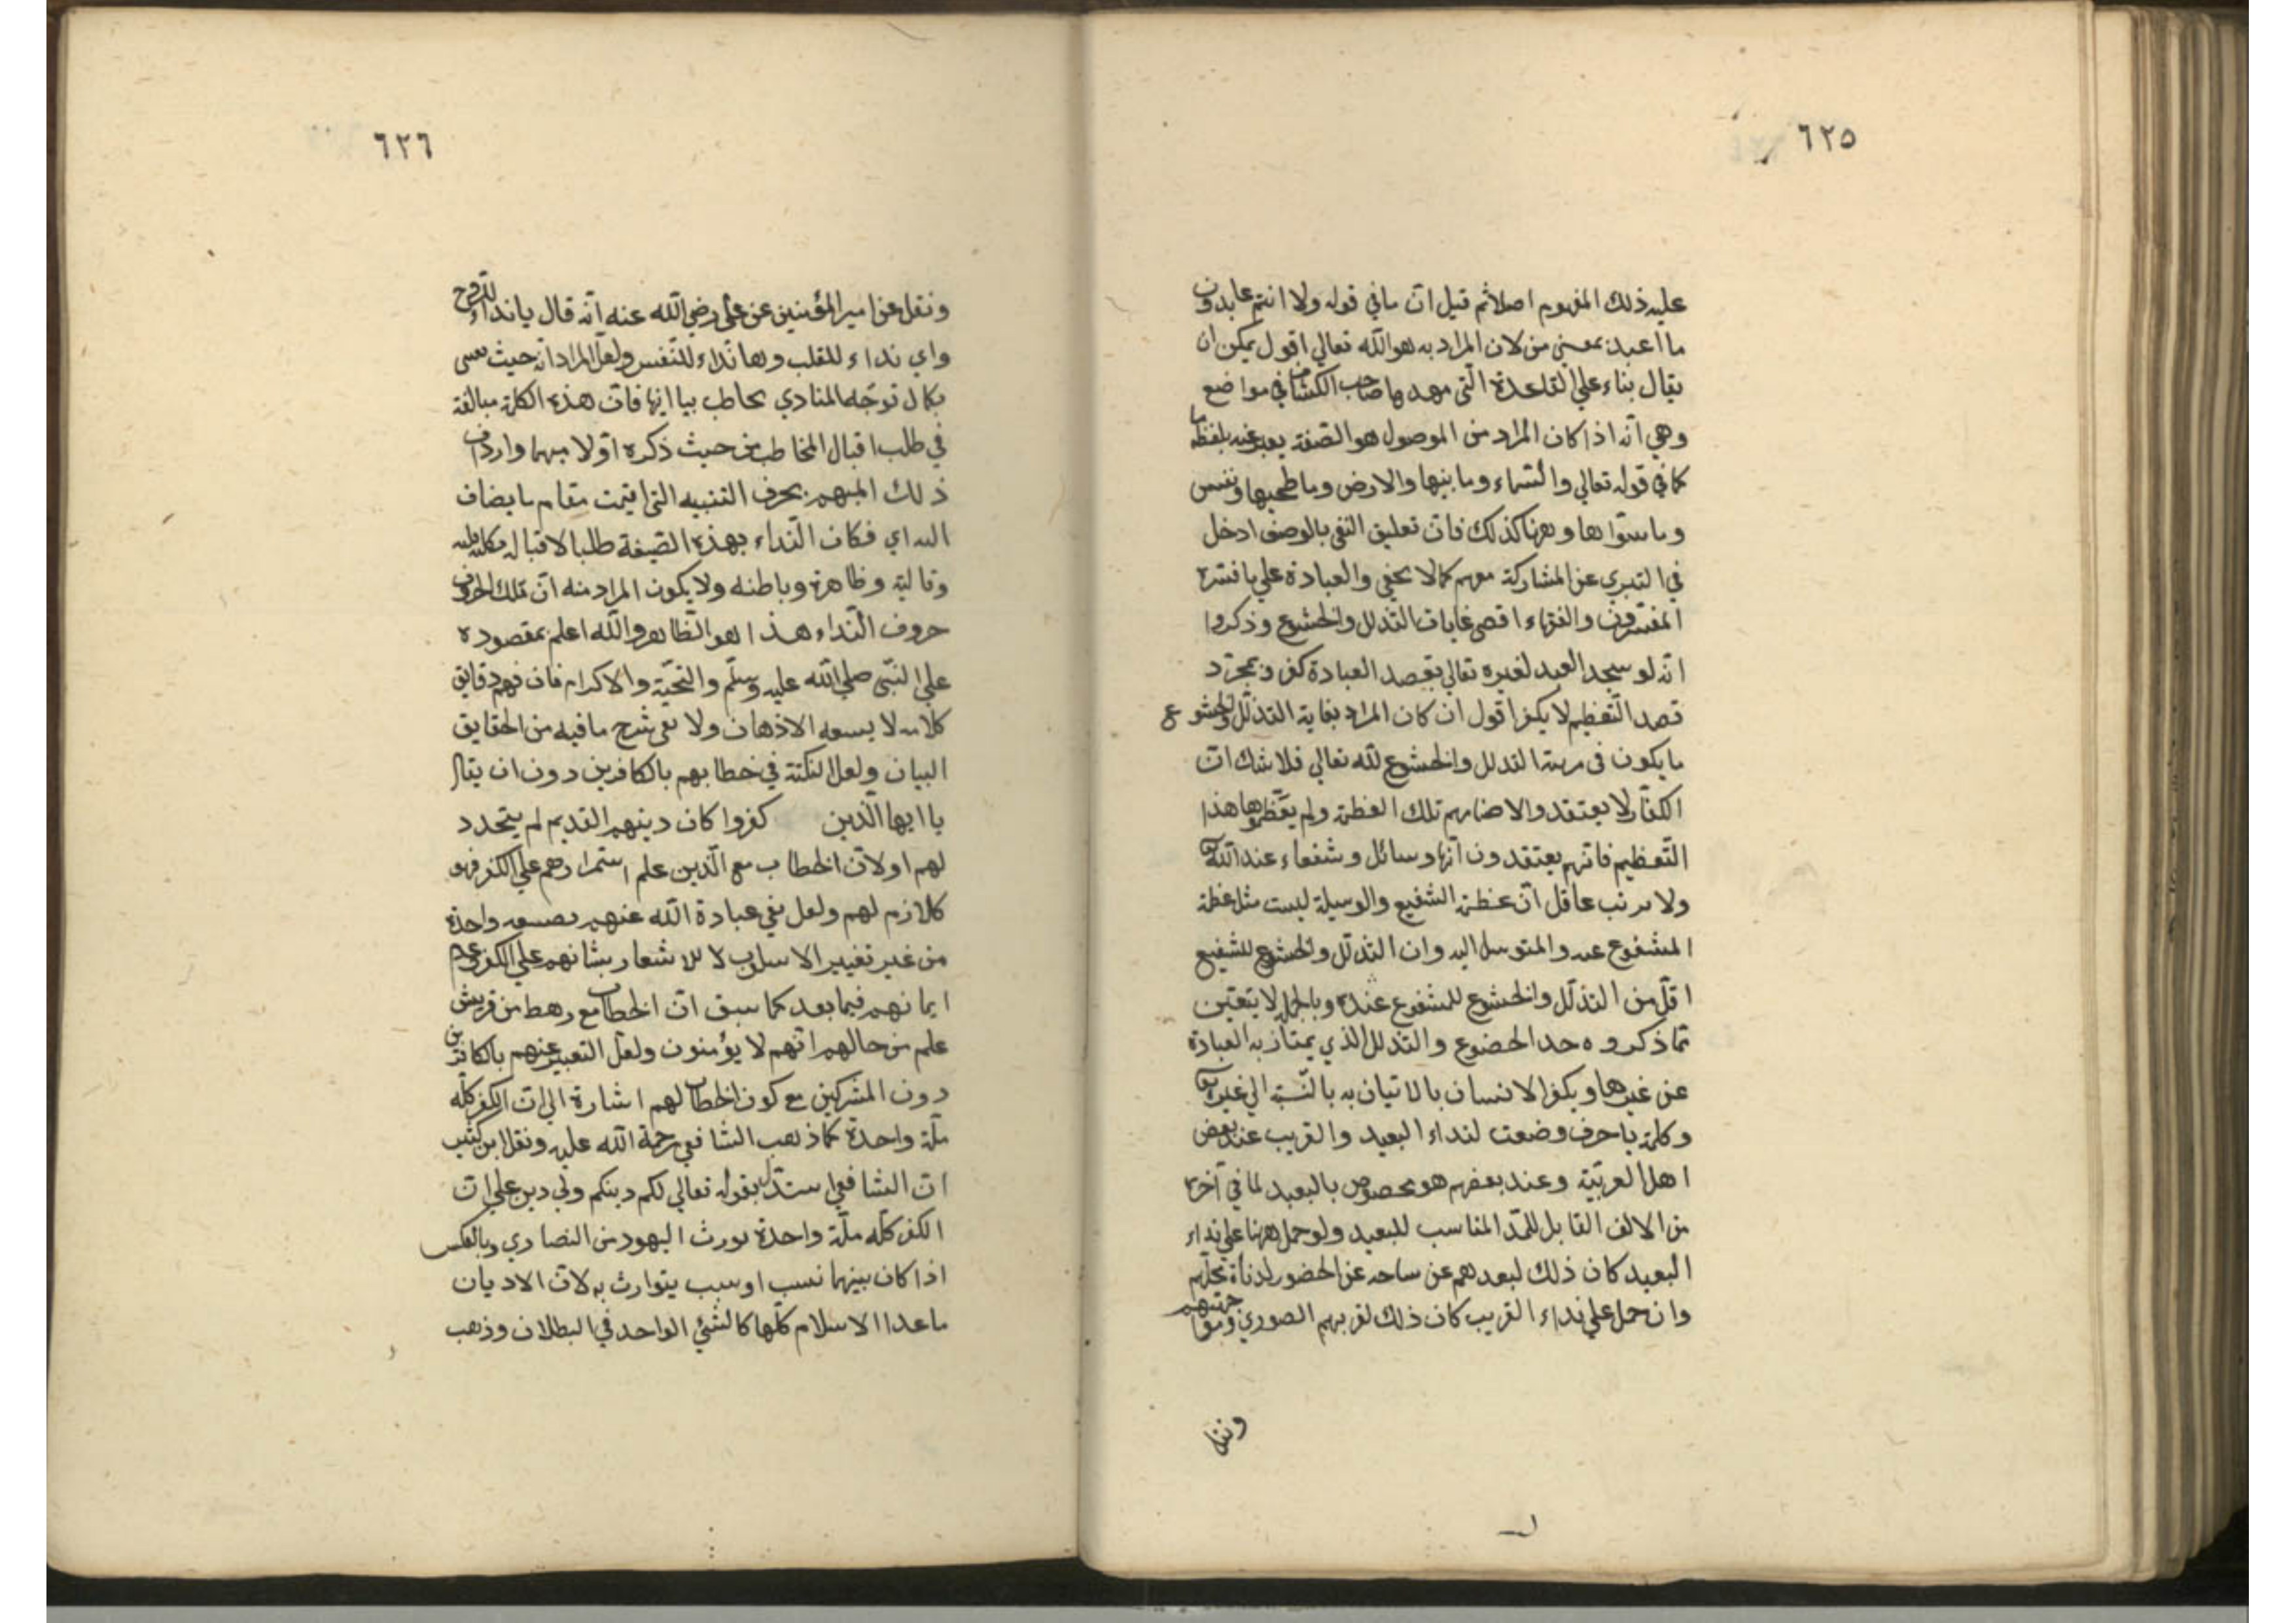 ٦٢٥
عليه ذلك المفهوم اصلا ثم قيل ان ما في قوله ولا انتم عابدون
ما اعبد بمعنى من لان المراد به هو الله تعالي اقول يمكن ان
يقال بناء علي القاعدة التي مهدها صاحب الكشاف في مواضع
وهي انه اذا كان المراد من الموصول هو الصفة يعبر عنه بلفظ ما
كما في قوله تعالي والسماء وما بنيها والارض وما طحيها ونفس
وما سوّاها وههنا كذلك فان تعليق النفي بالوصف ادخل
في التبري عن المشاركة معهم كما لا يخفي والعبادة علي ما فسره
المفسرون والفقهاء اقصي غايات التذلل والخشوع وذكروا
انه لو سجد العبد لغيره تعالي بقصد العبادة كفر وبمجرّد
قصد التعظيم لا يكفر اقول ان كان المراد بغاية التذلّل والخشوع
ما يكون في مرتبة التذلل والخشوع لله تعالي فلا شك انّ
الكفّار لا يعتقدوا لاصنامهم تلك العظمة ولم يعظّموها هذا
التعظيم فانهم يعتقدون انها وسائل وشفعاء عند الله
ولا يرتب عاقل انّ عظمة الشفيع والوسيلة ليست مثل عظمة
المشفوع عنه والمتوسل اليه وان التذلّل والخشوع للشفيع
اقلّ من التذلّل والخشوع للمشفوع عنده وبالجملة لا يتعيّن
مما ذكروه حد الخضوع والتذلل الذي يمتاز به العبادة
عن غيرها ويكفر الانسان بالاتيان به بالنّسبة الي غيره
وكلمة يا حرف وضعت لنداء البعيد والقريب عند بعض
اهل العربيّة وعند بعضهم هو مخصوص بالبعيد لما في آخره
من الالف القابل للمدّ المناسب للبعيد ولو حمل ههنا علي نداء
البعيد كان ذلك لبعدهم عن ساحة عن الحضور لدنأة محلّهم
وان حمل علي نداء القريب كان ذلك لقربهم الصوري
ونقل
٦٢٦
ونقل عن امير المؤمنين عن علي رضي الله عنه انّه قال يا نداء للروح
واي نداء للقلب وها نداء للنّفس ولعلّ المراد انه حيث
بكمال توجّه المنادي يخاطب بيا ايها فانّ هذه الكلمة مبالغة
في طلب اقبال المخاطب من حيث ذكره اوّلا مبهما واردف
ذلك المبهم بحرف التنبيه التي اقيمت مقام ما يضاف
اليه اي فكان النّداء بهذه الصّيغة طلبا لاقباله بكلّه
وقالبة وظاهره وباطنه ولا يكون المراد منه انّ تلك الحروف
حروف النّداء هذا هو الظّاهر والله اعلم بمقصوده
علي النبّي صلي الله عليه وسلّم والتحيّة والاكرام فان فهم دقايق
كلامه لا يسعه الاذهان ولا يفي بشرح ما فيه من الحقايق
البيان ولعل النكتة في خطابهم بالكافرين دون ان يقال
يا ايها الّذين كفروا كان دينهم القديم لم يتجدد
لهم اولانّ الخطاب مع الّذين علم استمرارهم علي الكفر فهو
كاللازم لهم ولعل نفي عبادة الله عنهم بصيغة واحدة
من غير تغيير الاسلوب لا للاشعار بثباتهم علي الكفر وعدم
ايمانهم فيما بعد كما سبق انّ الخطاب مع رهط من قريش
علم من حالهم انّهم لا يؤمنون ولعلّ التعبير عنهم بالكافرين
دون المشركين مع كون الخطاب لهم اشارة الي انّ الكفر كلّه
ملّة واحدة كما ذهب الشافعي رحمة الله عليه ونقل ابن كثير
ان الشافعي استدلّ بقوله تعالي لكم دينكم ولي دين علي ان
الكفر كلّه ملّة واحدة يورث اليهود من النصاري وبالعكس
اذا كان بينهما نسب او سبب يتوارث به لانّ الاديان
ما عدا الاسلام كلّها كالشئ الواحد في البطلان وذهب